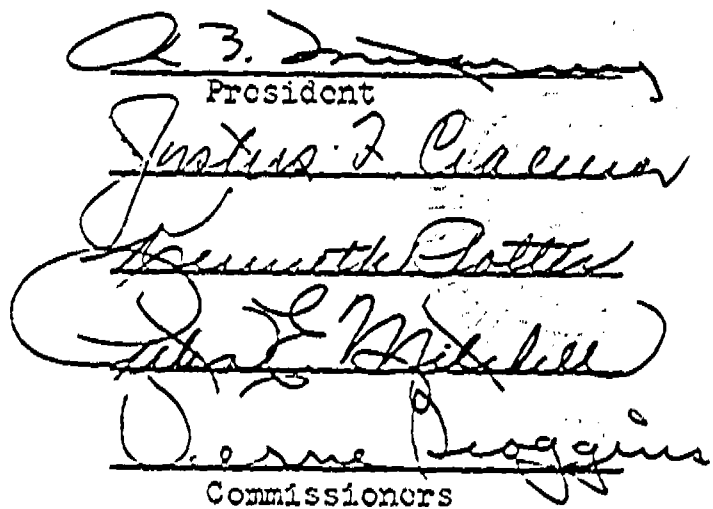 President
Justus F. Craemer
Kenneth Potter
Peter E. Mitchell
Verne Scoggins
Commissioners